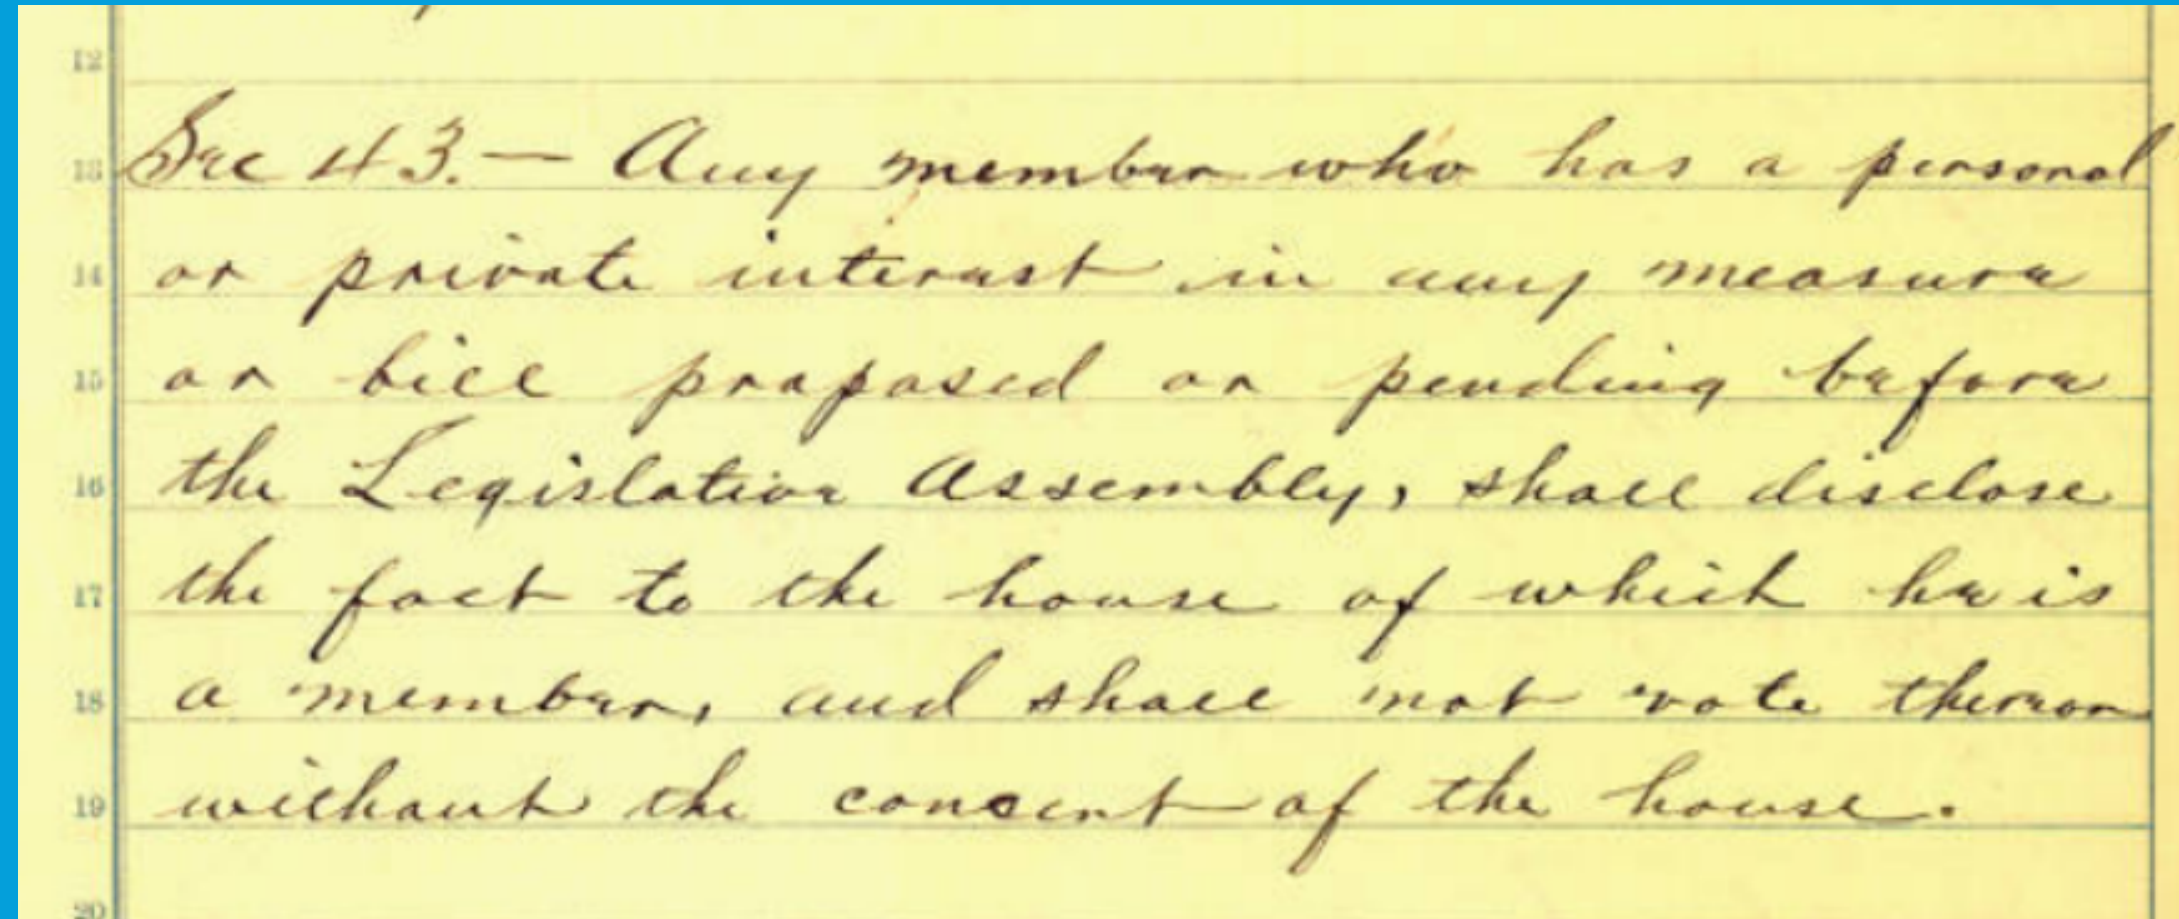 12
13 Sec 43.— Any member who has a personal
14 or private interest in any measure
15 or bill proposed or pending before
16 the Legislative Assembly, shall disclose
17 the fact to the house of which he is
18 a member, and shall not vote thereon
19 without the consent of the house.
20